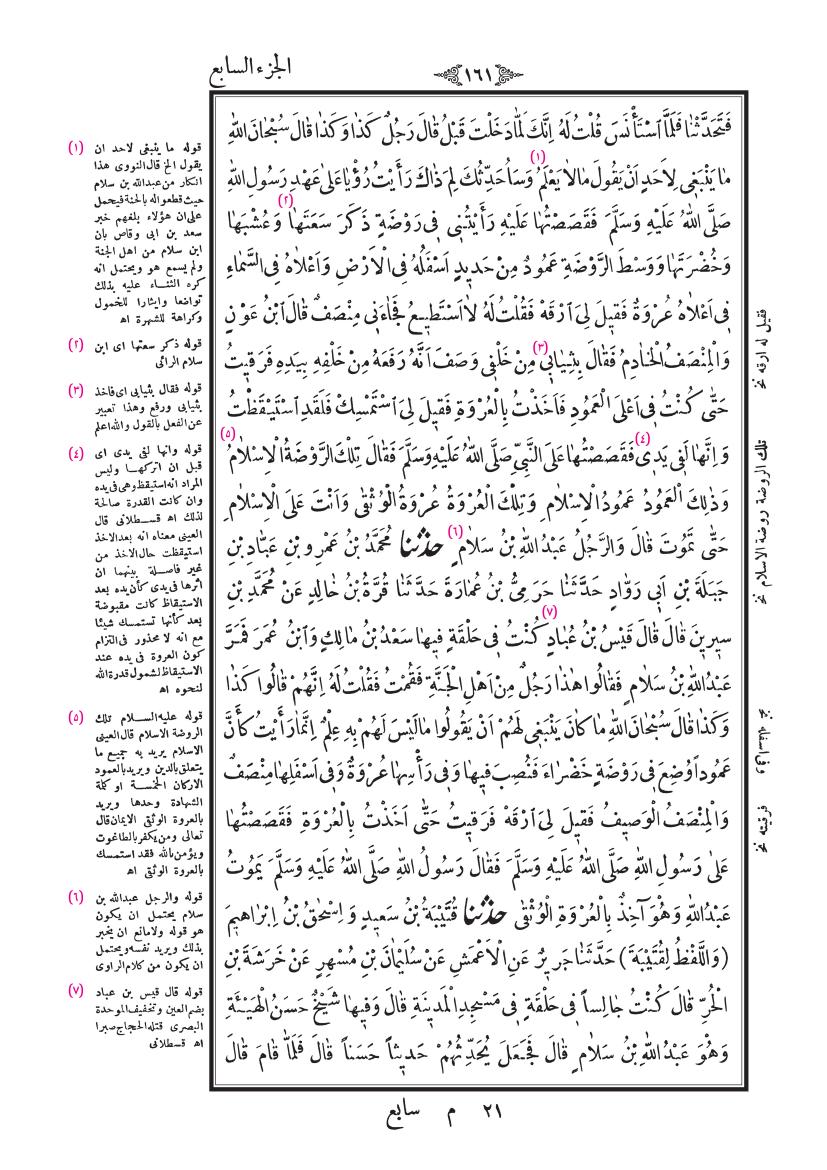 ١٦١
الجزء السابع
فَتَحَدَّثْنَا فَلَمَّا ٱسْتَأْنَسَ قُلْتُ لَهُ اِنَّكَ لَمَّا دَخَلْتَ قَبْلُ قَالَ رَجُلٌ كَذَا وَكَذَا قَالَ سُبْحَانَ اللّٰهِ
مَا يَنْبَغِى لِاَحَدٍ اَنْ يَقُولَ مَالَا يَعْلَمُ (١) وَسَاُحَدِّثُكَ لِمَ ذَاكَ رَأَيْتُ رُؤْيَا عَلٰى عَهْدِ رَسُولِ اللّٰهِ
صَلَّى اللّٰهُ عَلَيْهِ وَسَلَّمَ فَقَصَصْتُهَا عَلَيْهِ رَأَيْتُنِى فِى رَوْضَةٍ ذَكَرَ سَعَتَهَا (٢) وَعُشْبَهَا
وَخُضْرَتَهَا وَوَسْطَ الرَّوْضَةِ عَمُودٌ مِنْ حَدِيدٍ اَسْفَلُهُ فِى الْاَرْضِ وَاَعْلَاهُ فِى السَّمَاءِ
فِى اَعْلَاهُ عُرْوَةٌ فَقِيلَ لِىَ ٱرْقَهْ فَقُلْتُ لَهُ لَا اَسْتَطِيعُ فَجَاءَنِى مِنْصَفٌ قَالَ ابْنُ عَوْنٍ
وَالْمِنْصَفُ الْخَادِمُ فَقَالَ بِثِيَابِى (٣) مِنْ خَلْفِى وَصَفَ اَنَّهُ رَفَعَهُ مِنْ خَلْفِهِ بِيَدِهِ فَرَقِيتُ
حَتّٰى كُنْتُ فِى اَعْلَى الْعَمُودِ فَاَخَذْتُ بِالْعُرْوَةِ فَقِيلَ لِىَ ٱسْتَمْسِكْ فَلَقَدِ ٱسْتَيْقَظْتُ
وَاِنَّهَا لَفِى يَدِى (٤) فَقَصَصْتُهَا عَلَى النَّبِىِّ صَلَّى اللّٰهُ عَلَيْهِ وَسَلَّمَ فَقَالَ تِلْكَ الرَّوْضَةُ الْاِسْلَامُ (٥)
وَذٰلِكَ الْعَمُودُ عَمُودُ الْاِسْلَامِ وَتِلْكَ الْعُرْوَةُ عُرْوَةُ الْوُثْقٰى وَاَنْتَ عَلَى الْاِسْلَامِ
حَتّٰى تَمُوتَ قَالَ وَالرَّجُلُ عَبْدُ اللّٰهِ بْنُ سَلَامٍ (٦) حدثنا مُحَمَّدُ بْنُ عَمْرِو بْنِ عَبَّادِ بْنِ
جَبَلَةَ بْنِ اَبِى رَوَّادٍ حَدَّثَنَا حَرَمِىُّ بْنُ عُمَارَةَ حَدَّثَنَا قُرَّةُ بْنُ خَالِدٍ عَنْ مُحَمَّدِ بْنِ
سِيرِينَ قَالَ قَالَ قَيْسُ بْنُ عُبَادٍ (٧) كُنْتُ فِى حَلْقَةٍ فِيهَا سَعْدُ بْنُ مَالِكٍ وَابْنُ عُمَرَ فَمَرَّ
عَبْدُ اللّٰهِ بْنُ سَلَامٍ فَقَالُوا هٰذَا رَجُلٌ مِنْ اَهْلِ الْجَنَّةِ فَقُمْتُ فَقُلْتُ لَهُ اِنَّهُمْ قَالُوا كَذَا
وَكَذَا قَالَ سُبْحَانَ اللّٰهِ مَا كَانَ يَنْبَغِى لَهُمْ اَنْ يَقُولُوا مَا لَيْسَ لَهُمْ بِهِ عِلْمٌ اِنَّمَا رَأَيْتُ كَأَنَّ
عَمُوداً وُضِعَ فِى رَوْضَةٍ خَضْرَاءَ فَنُصِبَ فِيهَا وَفِى رَأْسِهَا عُرْوَةٌ وَفِى اَسْفَلِهَا مِنْصَفٌ
وَالْمِنْصَفُ الْوَصِيفُ فَقِيلَ لِىَ ٱرْقَهْ فَرَقِيتُ حَتّٰى اَخَذْتُ بِالْعُرْوَةِ فَقَصَصْتُهَا
عَلٰى رَسُولِ اللّٰهِ صَلَّى اللّٰهُ عَلَيْهِ وَسَلَّمَ فَقَالَ رَسُولُ اللّٰهِ صَلَّى اللّٰهُ عَلَيْهِ وَسَلَّمَ يَمُوتُ
عَبْدُ اللّٰهِ وَهُوَ آخِذٌ بِالْعُرْوَةِ الْوُثْقٰى حدثنا قُتَيْبَةُ بْنُ سَعِيدٍ وَاِسْحٰقُ بْنُ اِبْرَاهِيمَ
(وَاللَّفْظُ لِقُتَيْبَةَ) حَدَّثَنَا جَرِيرٌ عَنِ الْاَعْمَشِ عَنْ سُلَيْمَانَ بْنِ مُسْهِرٍ عَنْ خَرَشَةَ بْنِ
الْحُرِّ قَالَ كُنْتُ جَالِساً فِى حَلْقَةٍ فِى مَسْجِدِ الْمَدِينَةِ قَالَ وَفِيهَا شَيْخٌ حَسَنُ الْهَيْئَةِ
وَهُوَ عَبْدُ اللّٰهِ بْنُ سَلَامٍ قَالَ فَجَعَلَ يُحَدِّثُهُمْ حَدِيثاً حَسَناً قَالَ فَلَمَّا قَامَ قَالَ
(١) قوله ما ينبغى لاحد ان
يقول الخ قال النووى هذا
انكار من عبدالله بن سلام
حيث قطعوا له بالجنة فيحمل
على ان هؤلاء بلغهم خبر
سعد بن ابى وقاص بان
ابن سلام من اهل الجنة
ولم يسمع هو ويحتمل انه
كره الثناء عليه بذلك
تواضعا وايثارا للخمول
وكراهة للشهرة اه
(٢) قوله ذكر سعتها اى ابن
سلام الرائى
(٣) قوله فقال بثيابى اى فاخذ
بثيابى ورفع وهذا تعبير
عن الفعل بالقول والله اعلم
(٤) قوله وانها لفى يدى اى
قبل ان اتركها وليس
المراد انه استيقظ وهى فى يده
وان كانت القدرة صالحة
لذلك اه قسطلانى قال
العينى معناه انه بعد الاخذ
استيقظت حال الاخذ من
غير فاصلة بينهما ان
اثرها فى يدى كأن يده بعد
الاستيقاظ كانت مقبوضة
بعد كأنها تستمسك شيئا
مع انه لا محذور فى التزام
كون العروة فى يده عند
الاستيقاظ لشمول قدرة الله
لنحوه اه
(٥) قوله عليه السلام تلك
الروضة الاسلام قال العينى
الاسلام يريد به جميع ما
يتعلق بالدين ويريد بالعمود
الاركان الخمسة او كلمة
الشهادة وحدها ويريد
بالعروة الوثقى الايمان قال
تعالى ومن يكفر بالطاغوت
ويؤمن بالله فقد استمسك
بالعروة الوثقى اه
(٦) قوله والرجل عبدالله بن
سلام يحتمل ان يكون
هو قوله ولا مانع ان يخبر
بذلك ويريد نفسه ويحتمل
ان يكون من كلام الراوى
(٧) قوله قال قيس بن عباد
بضم العين وتخفيف الموحدة
البصرى قتله الحجاج صبرا
اه قسطلانى
فقيل له ارقه نخ
تلك الروضة روضة الاسلام نخ
وفى اسفله نخ
فرقيته نخ
٢١ م سابع